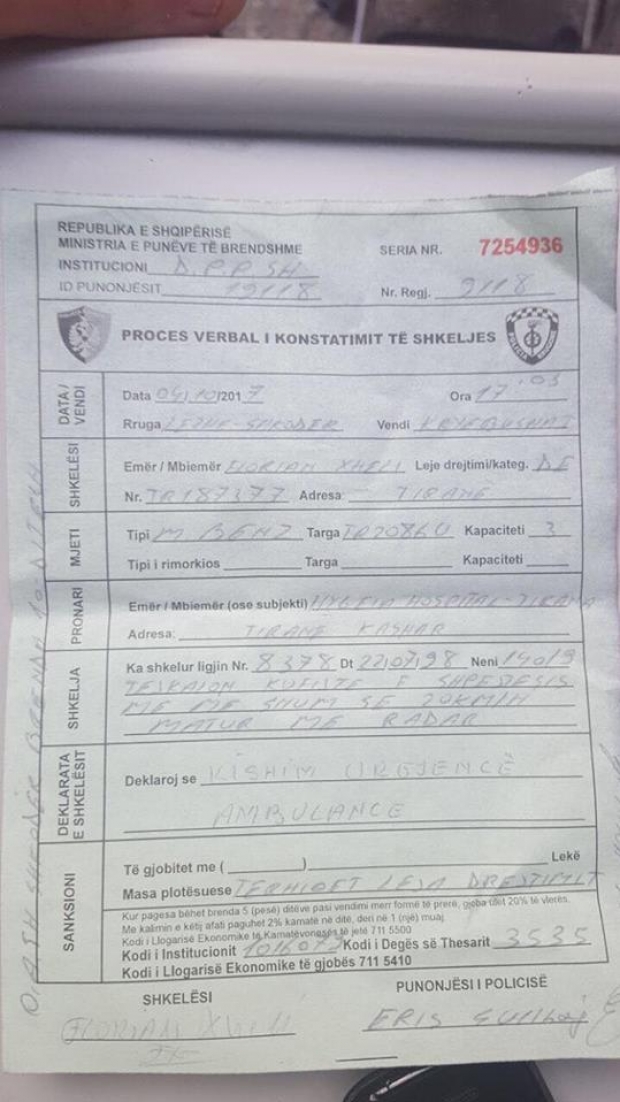 REPUBLIKA E SHQIPËRISË
MINISTRIA E PUNËVE TË BRENDSHME
SERIA NR. 7254936
INSTITUCIONI D.P.P.SH
ID PUNONJËSIT 19118 Nr. Regj. 9118
PROCES VERBAL I KONSTATIMIT TË SHKELJES
DATA / VENDI
Data 04/10/2017 Ora 17:05
Rruga LEZHE-SHKODER Vendi
SHKELËSI
Emër / Mbiemër FLORIAN XHELI Leje drejtimi/kateg.
Nr. Adresa: TIRANE
MJETI
Tipi M BENZ Targa Kapaciteti 3
Tipi i rimorkios Targa Kapaciteti
PRONARI
Emër / Mbiemër (ose subjekti) HYGEIA HOSPITAL TIRANA
Adresa: TIRANE KASHAR
SHKELJA
Ka shkelur ligjin Nr. 8378 Dt 22/07/98 Neni 140/9
TEJKALON KUFITE E SHPEJTESIS
ME ME SHUM SE 20KM/H
MATUR ME RADAR
DEKLARATA E SHKELËSIT
Deklaroj se KISHIM URGJENCË
AMBULANCE
SANKSIONI
Të gjobitet me ( ) Lekë
Masa plotësuese TERHIQET LEJA DREJTIMIT
Kur pagesa bëhet brenda 5 (pesë) ditëve pasi vendimi merr formë të prerë, gjoba ulet 20% të vlerës.
Me kalimin e këtij afati paguhet 2% kamatë në ditë, deri në 1 (një) muaj.
Kodi i Llogarisë Ekonomike të Kamatëvonesës të jetë 711 5500
Kodi i Institucionit 1016077 Kodi i Degës së Thesarit 3535
Kodi i Llogarisë Ekonomike të gjobës 711 5410
SHKELËSI PUNONJËSI I POLICISË
FLORIAN XHELI ERIS